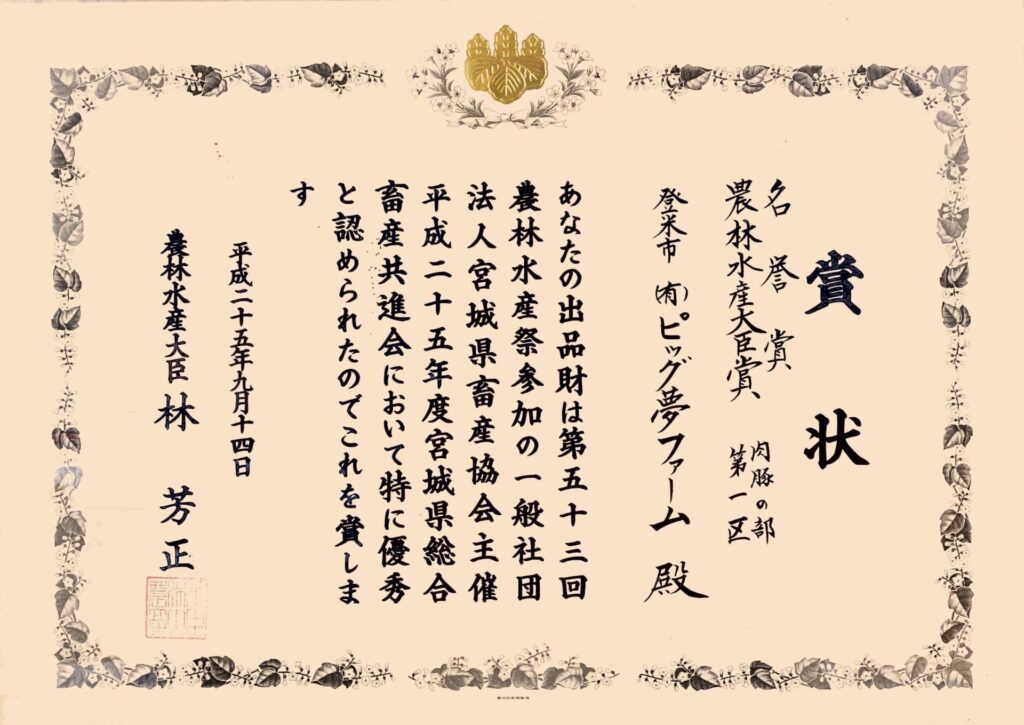 賞状
名誉賞
農林水産大臣賞
肉豚の部
第一区
登米市 (有)ピッグ夢ファーム 殿
あなたの出品財は第五十三回
農林水産祭参加の一般社団
法人宮城県畜産協会主催
平成二十五年度宮城県総合
畜産共進会において特に優秀
と認められたのでこれを賞しま
す
平成二十五年九月十四日
農林水産大臣 林 芳正